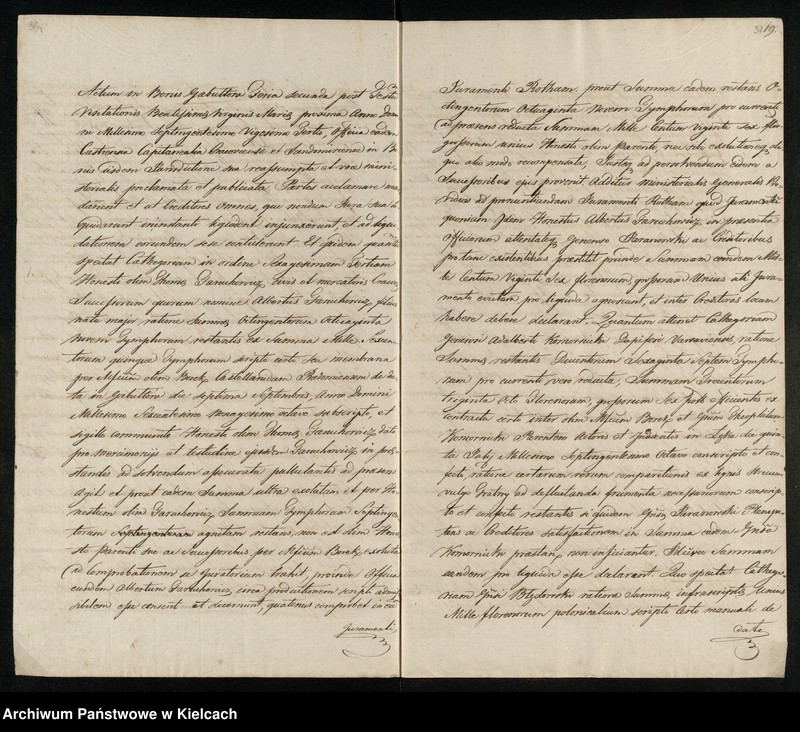 19.
Actum in Bonis Gabułtow Feria secunda post Festum
Visitationis Beatissimæ Virginis Mariæ proxima Anno Domi
ni Millesimo Septingentesimo Vigesimo Officia eadem
Castrensia Capitanealia Cracoviense et Sandomiriense in Bo
nis iisdem Jurisdictione sua reassumpta et voce mini
steriali proclamata et publicata, Partes acclamare man
darunt et at Creditores Omnes, qui nondum Jura sua li
quidarunt instanti injunxerunt, et ad liqui
dationem eorundem sese contulerunt. Et siquidem quantum
spectat Cathegoriam in ordine Sexagesimam Tertiam
Honesti olim Thomæ Jaruchowicz Civis et mercatoris
Successorum quorum nomine Albertus Jaruchowicz, filius
natu major, ratione Summæ Octingentorum Octuaginta
novem Tympforum restantis ex Summa Mille Sexcen
torum quinque Tympforum scripto certo seu membrana
per Mficum olim Borek Castellanum de da
ta in Gabułtow die septima Septembris Anno Domini
Millesimo Sexcentesimo Nonagesimo octavo subscripto, et
sigillo communito Honesto olim Thomæ Jaruchowicz dato
pro mercimoniis et ejusdem Jaruchowicz in
ad solvendum apocorata pullulantis ad præsens
agit et prout eadem Summa ultra exolutam et per Ho
nestum olim Jaruchowicz Summam Tympforum Septingen
torum Septingentorum agnitam restans, non est olim Hone
sto Parenti suo ac Successoribus per Mficum Borek exoluta
ad comprobationem se juratoriam trahit, proinde Officia
eundem Albertum Jaruchowicz circa productionem scripti admis
sibilem esse censent et decernunt, quatenus comprobet in eo
Juramenti
Juramenti Rotham. prout Summa eadem restans O-
ctingentorum Octuaginta Novem Tympforum pro currenti
ad præsens reducta Summam Mille Centum Viginti sex flor.
grossorum unius Honesto olim Parenti nec sibi exoluta neq. ali
quo alio modo recompensata, Justeq. ad persolvendum eidem a
Successoribus ejus provenit. Additus ministerialis Generalis Pro
vidus ad pronuntiandam Juramenti Rotham quod Juramentum
quoniam Idem Honestus Albertus Jaruchowicz in præsentia
Officiorum attentatisq. Generoso Skranowski ac Creditoribus
protunc existentibus præstitit proinde Summam eandem Mil
le Centum Viginti Sex florenorum, grossorum Unius uti Jura
mento evictam pro liquida agnoscunt, et inter Creditores locum
habere debere declarant. Quantum attinet Cathegoriam
Generosi Adalberti Komornicki Dapiferi ratione
Summæ restantis Ducentorum Sexaginta Septem Tympho
rum pro currenti vero reducta, Summam Trecentorum
triginta Octo florenorum, grossorum Sex efficientis ex
contractu certo inter olim Mficum Borek et Gnsum Theophilum
Komornicki Parentem Actoris et in die quin
ta July Millesimo Septingentesimo Octavo conscripto et con
fecto, ratione certarum rerum comparationis ex lignis
vulgo Tratwy ad defluitanda frumenta conscrip
to et confecto restantis siquidem Gnsus Skranowski Plenipo
tens ac Creditores satisfactionem in Summa eadem Gnso
Komornicki præstan. non inficiantur. Ideirco Summam
eandem pro liquida esse declarant. Quo spectat Cathego
riam Gnsi ratione Summæ, infrascriptæ, Unius
Mille florenorum polonicalium scripto certo manuali de
data
Archiwum Państwowe w Kielcach